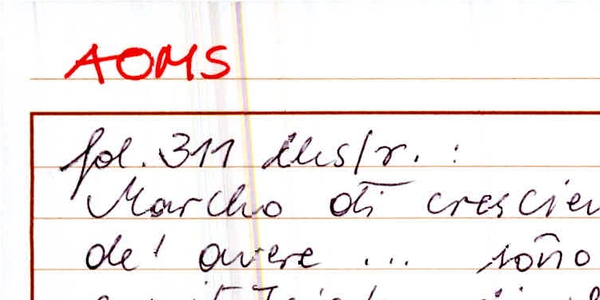 AOMS
fol. 311 lks/r. :
Marcho di crescien
de' avere ... sono